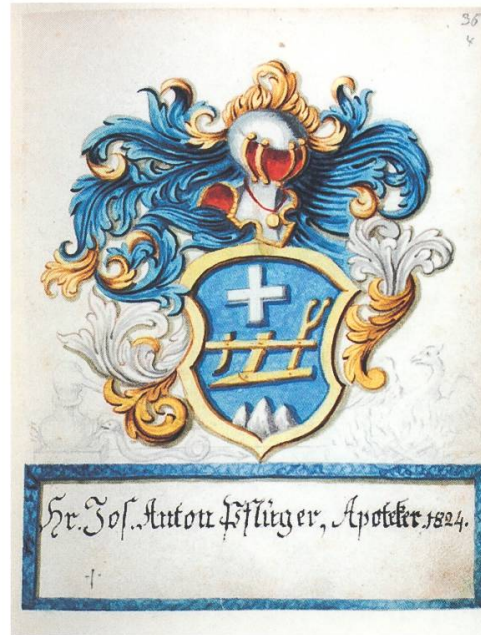 36
4
Hr. Jos. Anton Pflüger, Apoteker 1824.